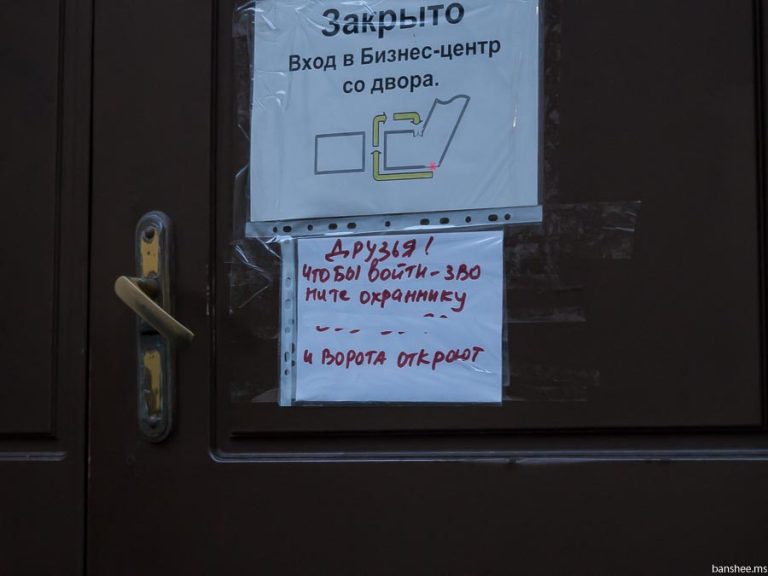 Закрыто
Вход в Бизнес-центр
со двора.
ДРУЗЬЯ!
ЧТОБЫ ВОЙТИ - ЗВО
НИТЕ ОХРАННИКУ
И ВОРОТА ОТКРОЮТ
banshee.ms